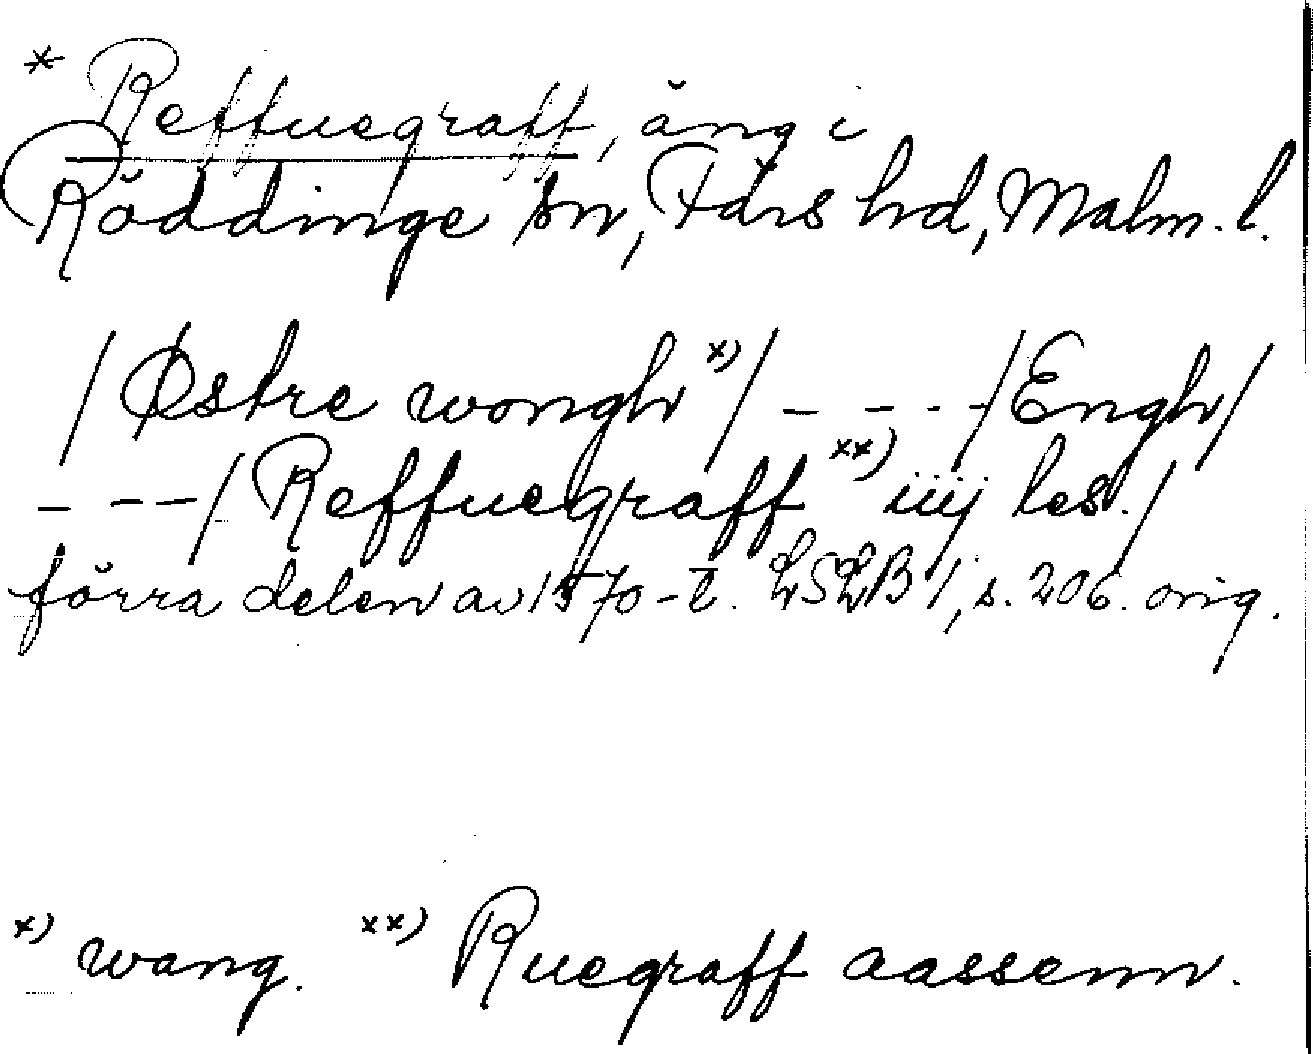 * Reffuegraff, äng i
Röddinge sn, Färs hd, Malm. l.
/Østre wongh x)/ _ _ _ _ /Engh/
_ _ _ / Reffuegraff xx) iiij les./
förra delen av 1570-t. LSLB 1, s. 206. orig.
x) wang. xx) Ruegraff aassenn.